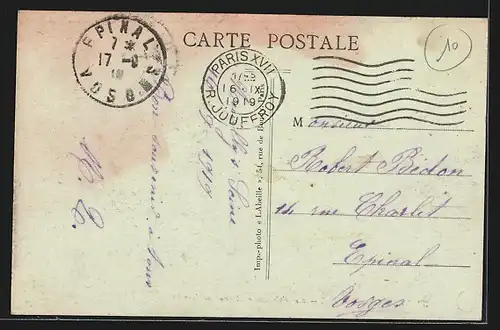 CARTE POSTALE
10
EPINAL
7
17-9
VOSGES
PARIS XVII
16 IX
1919
R. JOUFFROY
Monsieur
Robert Bidon
14 rue Charlet
Epinal
Vosges
Seine
1919
Bon souvenir à tous
Imp-photo « L'Abeille », 54, rue de Paris